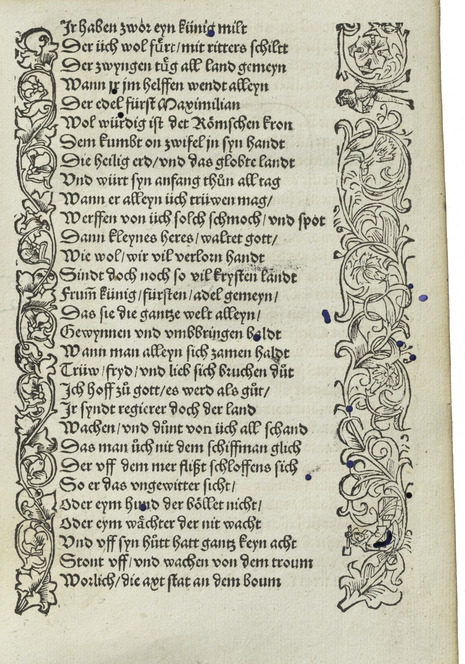 Ir haben zwor eyn künig milt
Der üch wol fürt/mit ritters schiltt
Der zwyngen tůg all land gemeyn
Wann ir im helffen wendt alleyn
Der edel fürst Maximilian
Wol würdig ist der Römschen kron
Dem kumbt on zwifel in syn handt
Die heilig erd/vnd das globte landt
Vnd würt syn anfang thůn all tag
Wann er alleyn üch trüwen mag/
Werffen von üch solch schmoch/vnd spot
Dann kleynes heres/waltet gott/
Wie wol/wir vil verlorn handt
Sindt doch noch so vil krysten landt
Frum̄ künig/fürsten/adel gemeyn/
Das sie die gantze welt alleyn/
Gewynnen vnd vmbbringen baldt
Wann man alleyn sich zamen haldt
Trüw/fryd/vnd lieb sich bruchen důt
Ich hoff zů gott/es werd als gůt/
Ir syndt regierer doch der land
Wachen/vnd důnt von üch all schand
Das man üch nit dem schiffman glich
Der vff dem mer flißt schloffens sich
So er das vngewitter sicht/
Oder eym hund der böllet nicht/
Oder eym wächter der nit wacht
Vnd vff syn hütt hatt gantz keyn acht
Stont vff/vnd wachen von dem troum
Worlich/die axt stat an dem boum